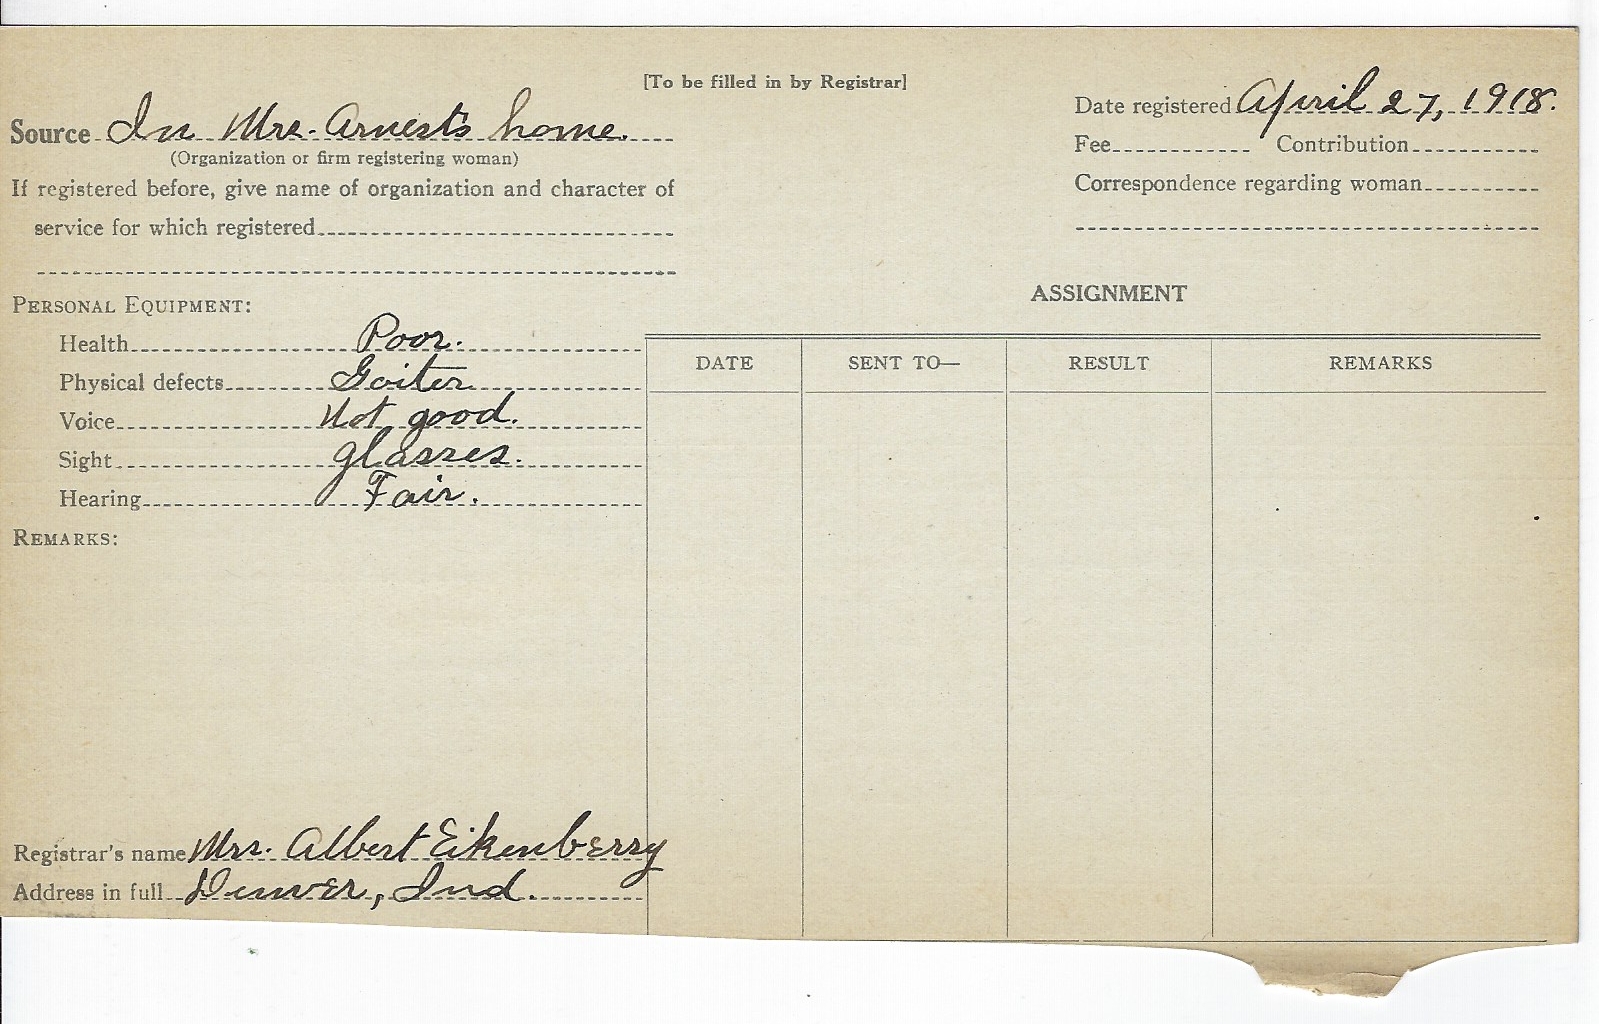 [To be filled in by Registrar]
Source In Mrs. Arnest's home.
(Organization or firm registering woman)
If registered before, give name of organization and character of
service for which registered
Date registered April 27, 1918.
Fee Contribution
Correspondence regarding woman
PERSONAL EQUIPMENT:
Health Poor.
Physical defects Goiter
Voice Not good.
Sight glasses.
Hearing Fair.
REMARKS:
ASSIGNMENT
DATE SENT TO— RESULT REMARKS
Registrar's name Mrs. Albert Eikenberry
Address in full Denver, Ind.